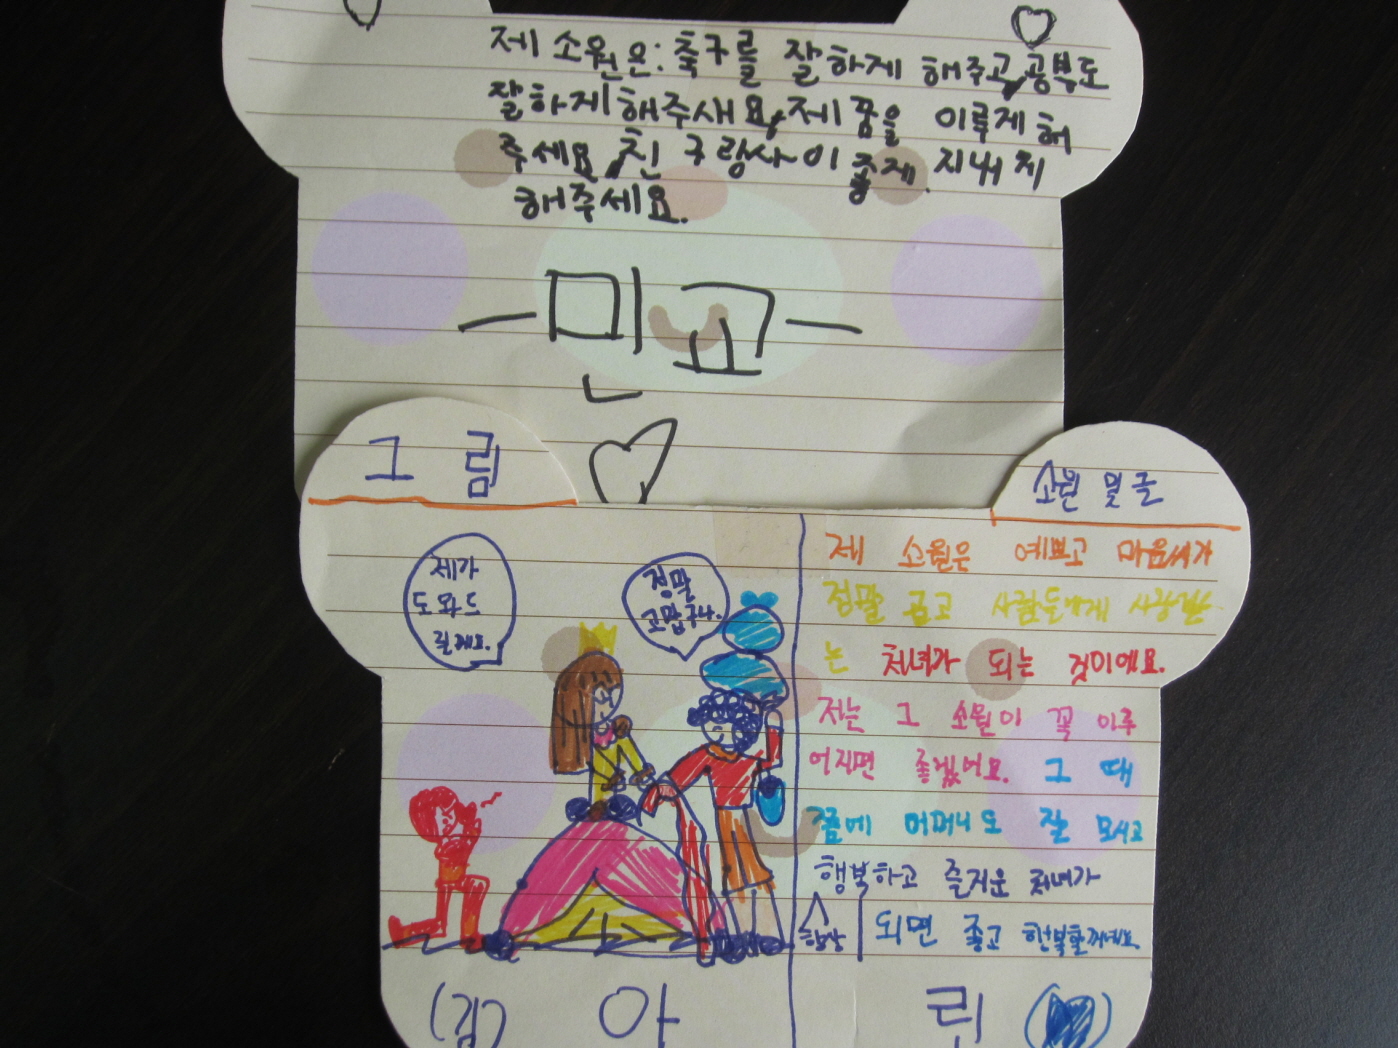 제 소원은: 축구를 잘하게 해주고,공부도
잘하게 해주새요,제 꿈을 이루게 해
주세요,친구랑사이좋게 지내게
해주세요.
민교
그림
소원 및 글
제가
도와드
릴게요.
정말
고맙구나.
제 소원은 예쁘고 마음씨가
정말 곱고 사람들에게 사랑받
는 처녀가 되는 것이에요.
저는 그 소원이 꼭 이루
어지면 좋겠어요. 그 때
쯤에 어머니도 잘 모시고
행복하고 즐거운 처녀가
항상
되면 좋고 행복할꺼예요
(김) 아 린